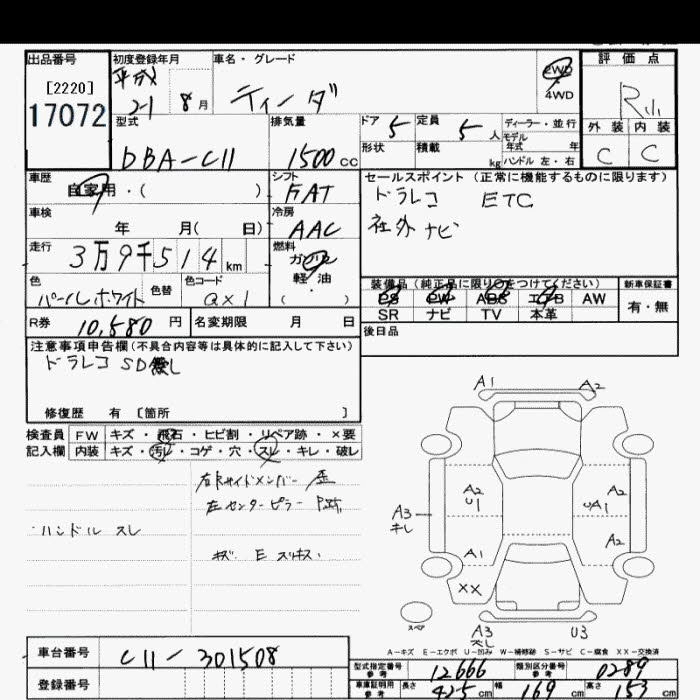 出品番号
[2220]
17072
初度登録年月
平成
21 8月
車名・グレード
ティーダ
2WD
4WD
評価点
R小
外装 内装
C C
型式
DBA-C11
排気量
1500cc
ドア 5
定員 5人
ディーラー・並行
モデル年式 年
形状
積載 kg
ハンドル 左・右
車歴
自家用・( )
シフト
FAT
セールスポイント (正常に機能するものに限ります)
ドラレコ ETC
社外 ナビ
車検
年 月( 日)
冷房
AAC
走行
3万9千514km
燃料
ガソリン
軽・油
( )
色
パールホワイト
色替
色コード
QX1
装備品(純正品に限り○をつけてください)
PS PW ABS エアB AW
SR ナビ TV 本革
新車保証書
有・無
R券 10,580円
名変期限 月 日
後日品
注意事項申告欄(不具合内容等は具体的に記入して下さい)
ドラレコ SD無し
修復歴 有 [箇所 ]
検査員記入欄
FW キズ・飛石・ヒビ割・リペア跡・×要
内装 キズ・汚れ・コゲ・穴・スレ・キレ・破レ
右Rサイドメンバー 歪
左センターピラー
ハンドル スレ
キズ・E
A1 A2
A2
U1
A2
UA1
A3
キレ
A2
A1
XX
スペア
A3
U3
A-キズ E-エクボ U-凹み W-補修跡 S-サビ C-腐食 XX-交換済
車台番号
C11-301508
登録番号
型式指定番号 参考 12666
類別区分番号 参考 0289
車庫証明用 参考 長さ 425cm 幅 169cm 高さ 153cm